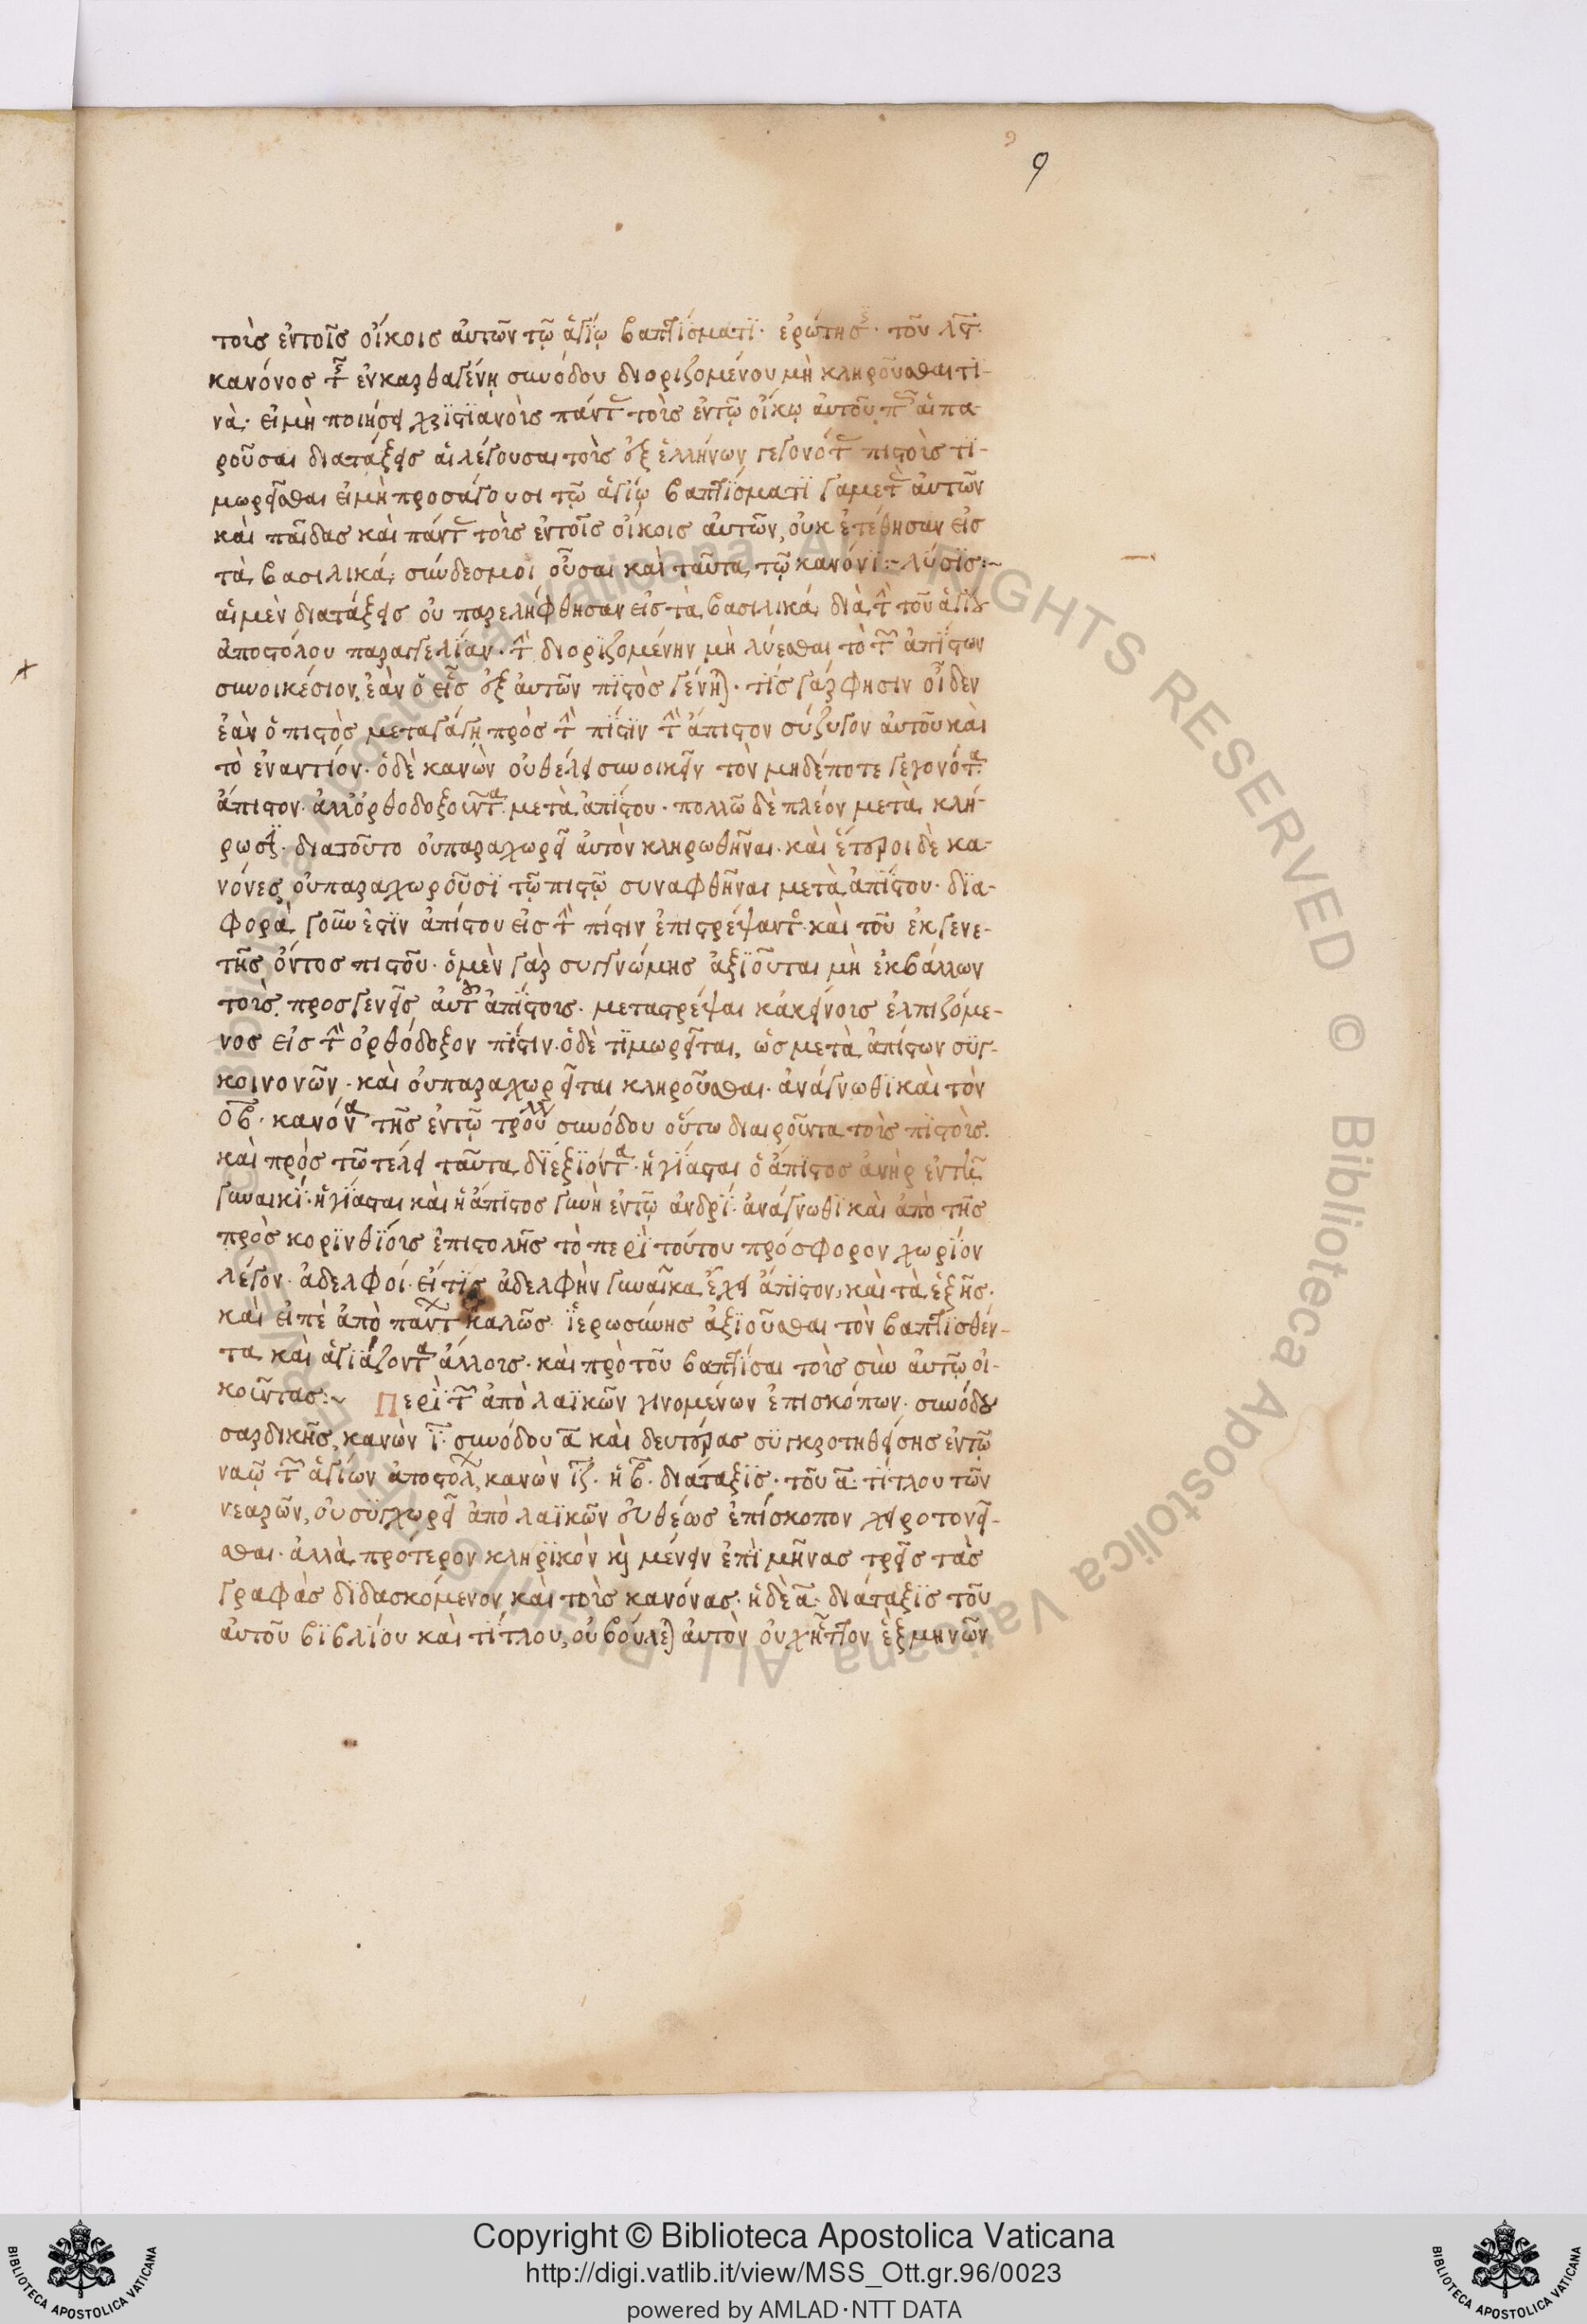 9
τοὺς ἐν τοῖς οἴκοις αὐτῶν τῷ ἁγίῳ βαπτίσματι· ἐρώτησις· τοῦ λϛ·
κανόνος τῆς ἐν καρθαγένῃ συνόδου διοριζομένου μὴ κληροῦσθαι τι-
νὰ· εἰ μὴ ποιήσει χριστιανοὺς πάντας τοὺς ἐν τῷ οἴκῳ αὐτοῦ, πῶς αἱ πα-
ροῦσαι διατάξεις αἱ λέγουσαι τοὺς ἐξ ἑλλήνων γεγονότας πιστοὺς τι-
μωρεῖσθαι εἰ μὴ προσάγουσι τῷ ἁγίῳ βαπτίσματι γαμετὰς αὐτῶν
καὶ παῖδας καὶ πάντας τοὺς ἐν τοῖς οἴκοις αὐτῶν, οὐκ ἐτέθησαν εἰς
τὰ βασιλικά, σύνδεσμοι οὖσαι καὶ ταῦτα τῷ κανόνι:~ λύσις:~
αἱ μὲν διατάξεις οὐ παρελήφθησαν εἰς τὰ βασιλικά, διὰ τὴν τοῦ ἁγίου
ἀποστόλου παραγγελίαν· τὴν διοριζομένην μὴ λύεσθαι τὸ τῶν ἀπίστων
συνοικέσιον, ἐὰν ὁ εἷς ἐξ αὐτῶν πιστὸς γένηται· τίς γάρ φησιν οἶδεν
ἐὰν ὁ πιστὸς μεταγάγῃ πρὸς τὴν πίστιν τὴν ἄπιστον σύζυγον αὐτοῦ καὶ
τὸ ἐναντίον· ὁ δὲ κανὼν οὐ θέλει συνοικεῖν τὸν μηδέποτε γεγονότα
ἄπιστον· ἀλλ' ὀρθοδοξοῦντα μετὰ ἀπίστου· πολλῶ δὲ πλέον μετὰ κλή-
ρωσιν· διατοῦτο οὐ παραχωρεῖ αὐτὸν κληρωθῆναι· καὶ ἕτεροι δὲ κα-
νόνες οὐ παραχωροῦσι τῷ πιστῷ συναφθῆναι μετὰ ἀπίστου· δια-
φορὰ γοῦν ἐστὶν ἀπίστου εἰς τὴν πίστιν ἐπιστρέψαντος· καὶ τοῦ ἐκ γενε-
τῆς ὄντος πιστοῦ· ὁ μὲν γὰρ συγγνώμης ἀξιοῦται μὴ ἐκβάλλων
τοὺς προσγενεῖς αὐτοῦ ἀπίστους· μεταστρέψαι κἀκείνους ἐλπιζόμε-
νος εἰς τὴν ὀρθόδοξον πίστιν· ὁ δὲ τιμωρεῖται, ὡς μετὰ ἀπίστων συγ-
κοινονῶν· καὶ οὐ παραχωρεῖται κληροῦσθαι· ἀνάγνωθι καὶ τὸν
οβ· κανόνα τῆς ἐν τῷ τρούλλω συνόδου οὕτω διαιροῦντα τοὺς πιστοὺς·
καὶ πρὸς τῶ τέλει ταῦτα διεξιόντα· ἡγίασται ὁ ἄπιστος ἀνὴρ ἐν τῇ
γυναικί· ἡγίασται καὶ ἡ ἄπιστος γυνὴ ἐν τῷ ἀνδρί· ἀνάγνωθι καὶ ἀπὸ τῆς
πρὸς κορινθίους ἐπιστολῆς τὸ περὶ τούτου πρόσφορον χωρίον
λέγον· ἀδελφοί· εἴ τις ἀδελφὴν γυναῖκα ἔχει ἄπιστον, καὶ τὰ ἑξῆς·
καὶ εἰπὲ ἀπὸ παντὸς καλῶς ἱερωσύνης ἀξιοῦσθαι τὸν βαπτισθέν-
τα καὶ ἁγιάζοντα ἄλλους· καὶ πρὸ τοῦ βαπτίσαι τοὺς σὺν αὐτῷ οἰ-
κοῦντας:~ Περὶ τῶν ἀπὸ λαϊκῶν γινομένων ἐπισκόπων· συνόδου
σαρδικῆς, κανὼν ι· συνόδου α καὶ δευτέρας συγκροτηθείσης ἐν τῷ
ναῷ τῶν ἁγίων ἀποστόλων, κανὼν ιζ· ἡ β· διάταξις· τοῦ α· τίτλου τῶν
νεαρῶν, οὐ συγχωρεῖ ἀπὸ λαϊκῶν εὐθέως ἐπίσκοπον χειροτονεῖ-
σθαι· ἀλλὰ πρότερον κληρικὸν καὶ μένειν ἐπὶ μῆνας τρεῖς τὰς
γραφὰς διδασκόμενον καὶ τοὺς κανόνας· ἡ δὲ α· διάταξις τοῦ
αὐτοῦ βιβλίου καὶ τίτλου, οὐ βούλεται αὐτὸν οὐχ ἧττον ἓξ μηνῶν
Copyright © Biblioteca Apostolica Vaticana
http://digi.vatlib.it/view/MSS_Ott.gr.96/0023
powered by AMLAD·NTT DATA